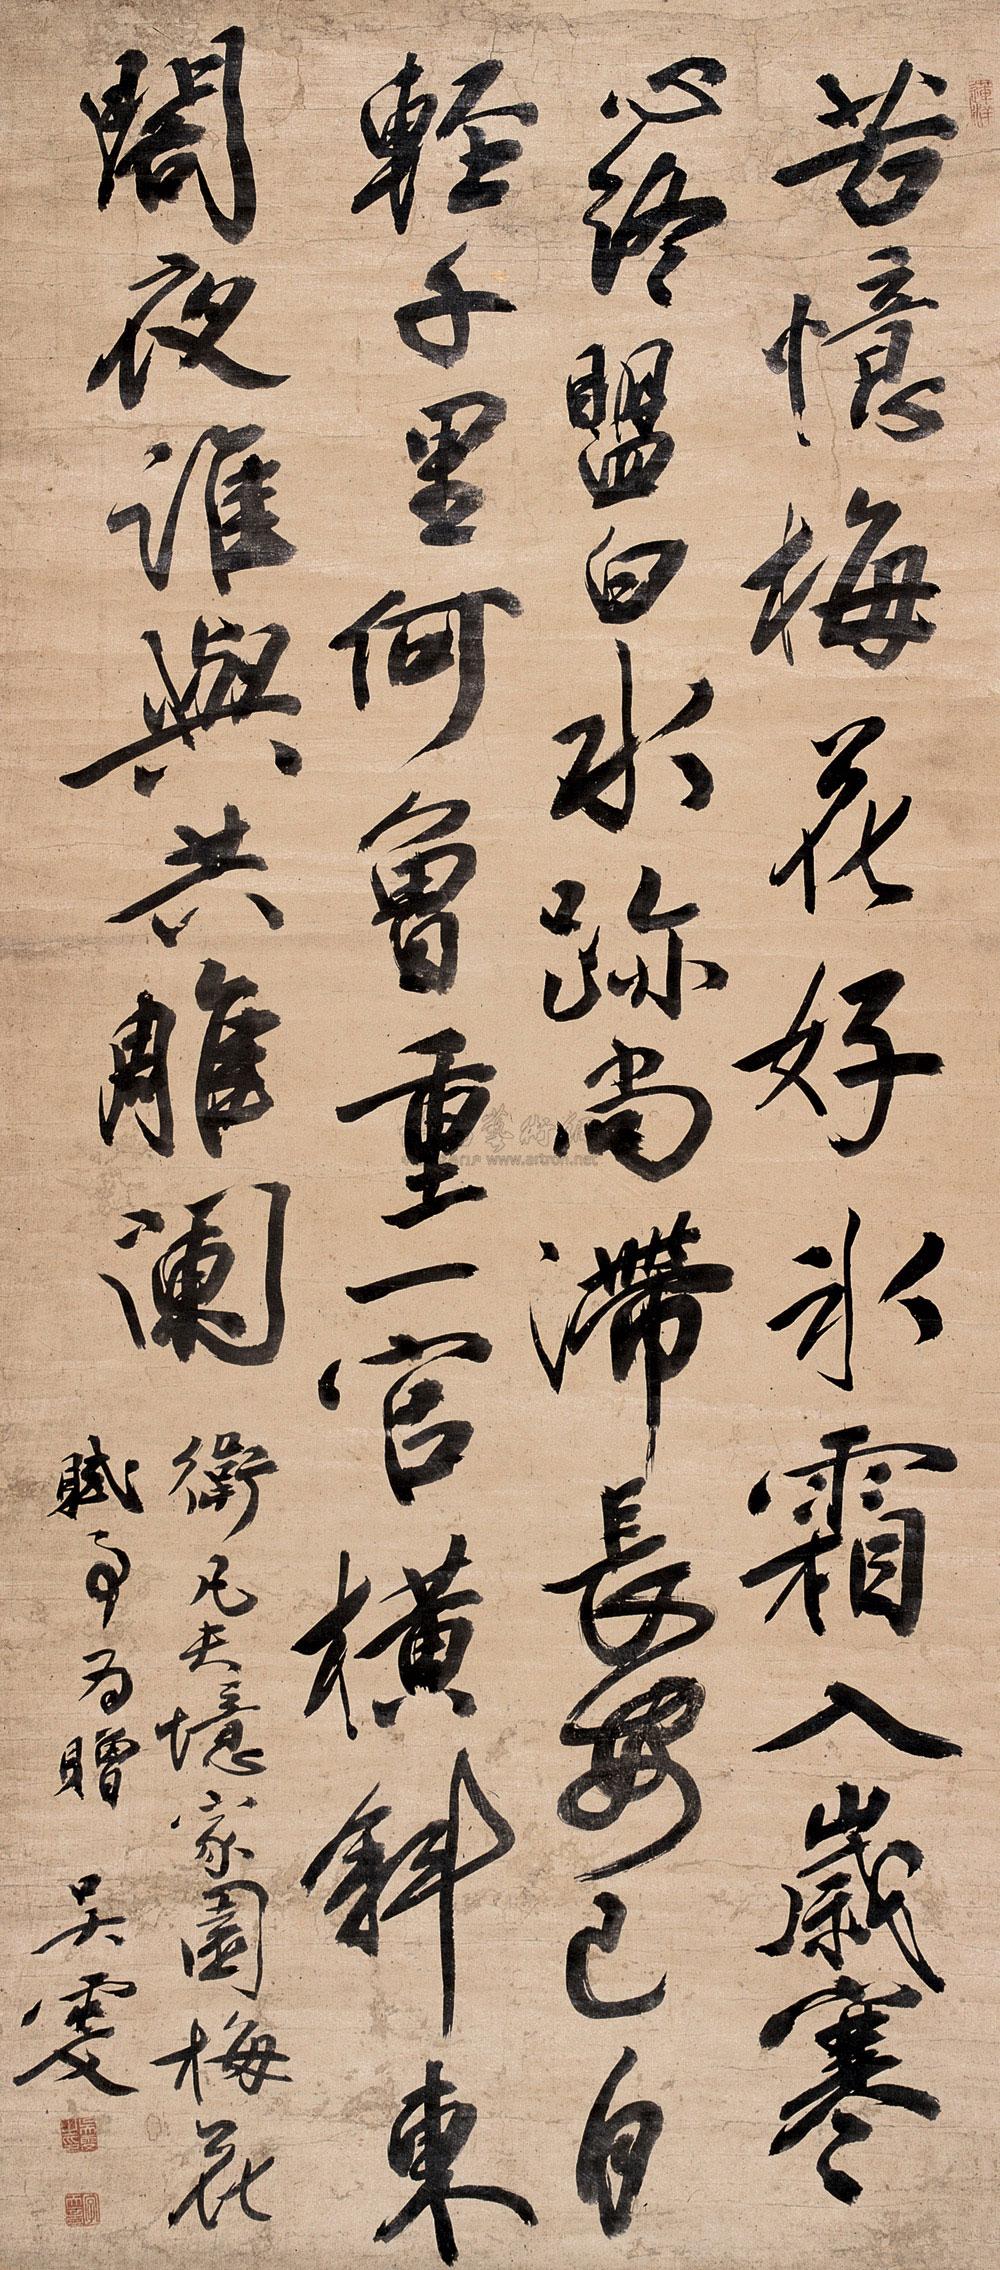 蓮洋
苦憶梅花好氷霜入歲寒
心終盟白水跡尚滯長安已自
輕千里何曾重一官橫斜東
閣夜誰與共雕闌
衛凡夫憶家園梅花
賦為贈 吳雯
www.artron.net